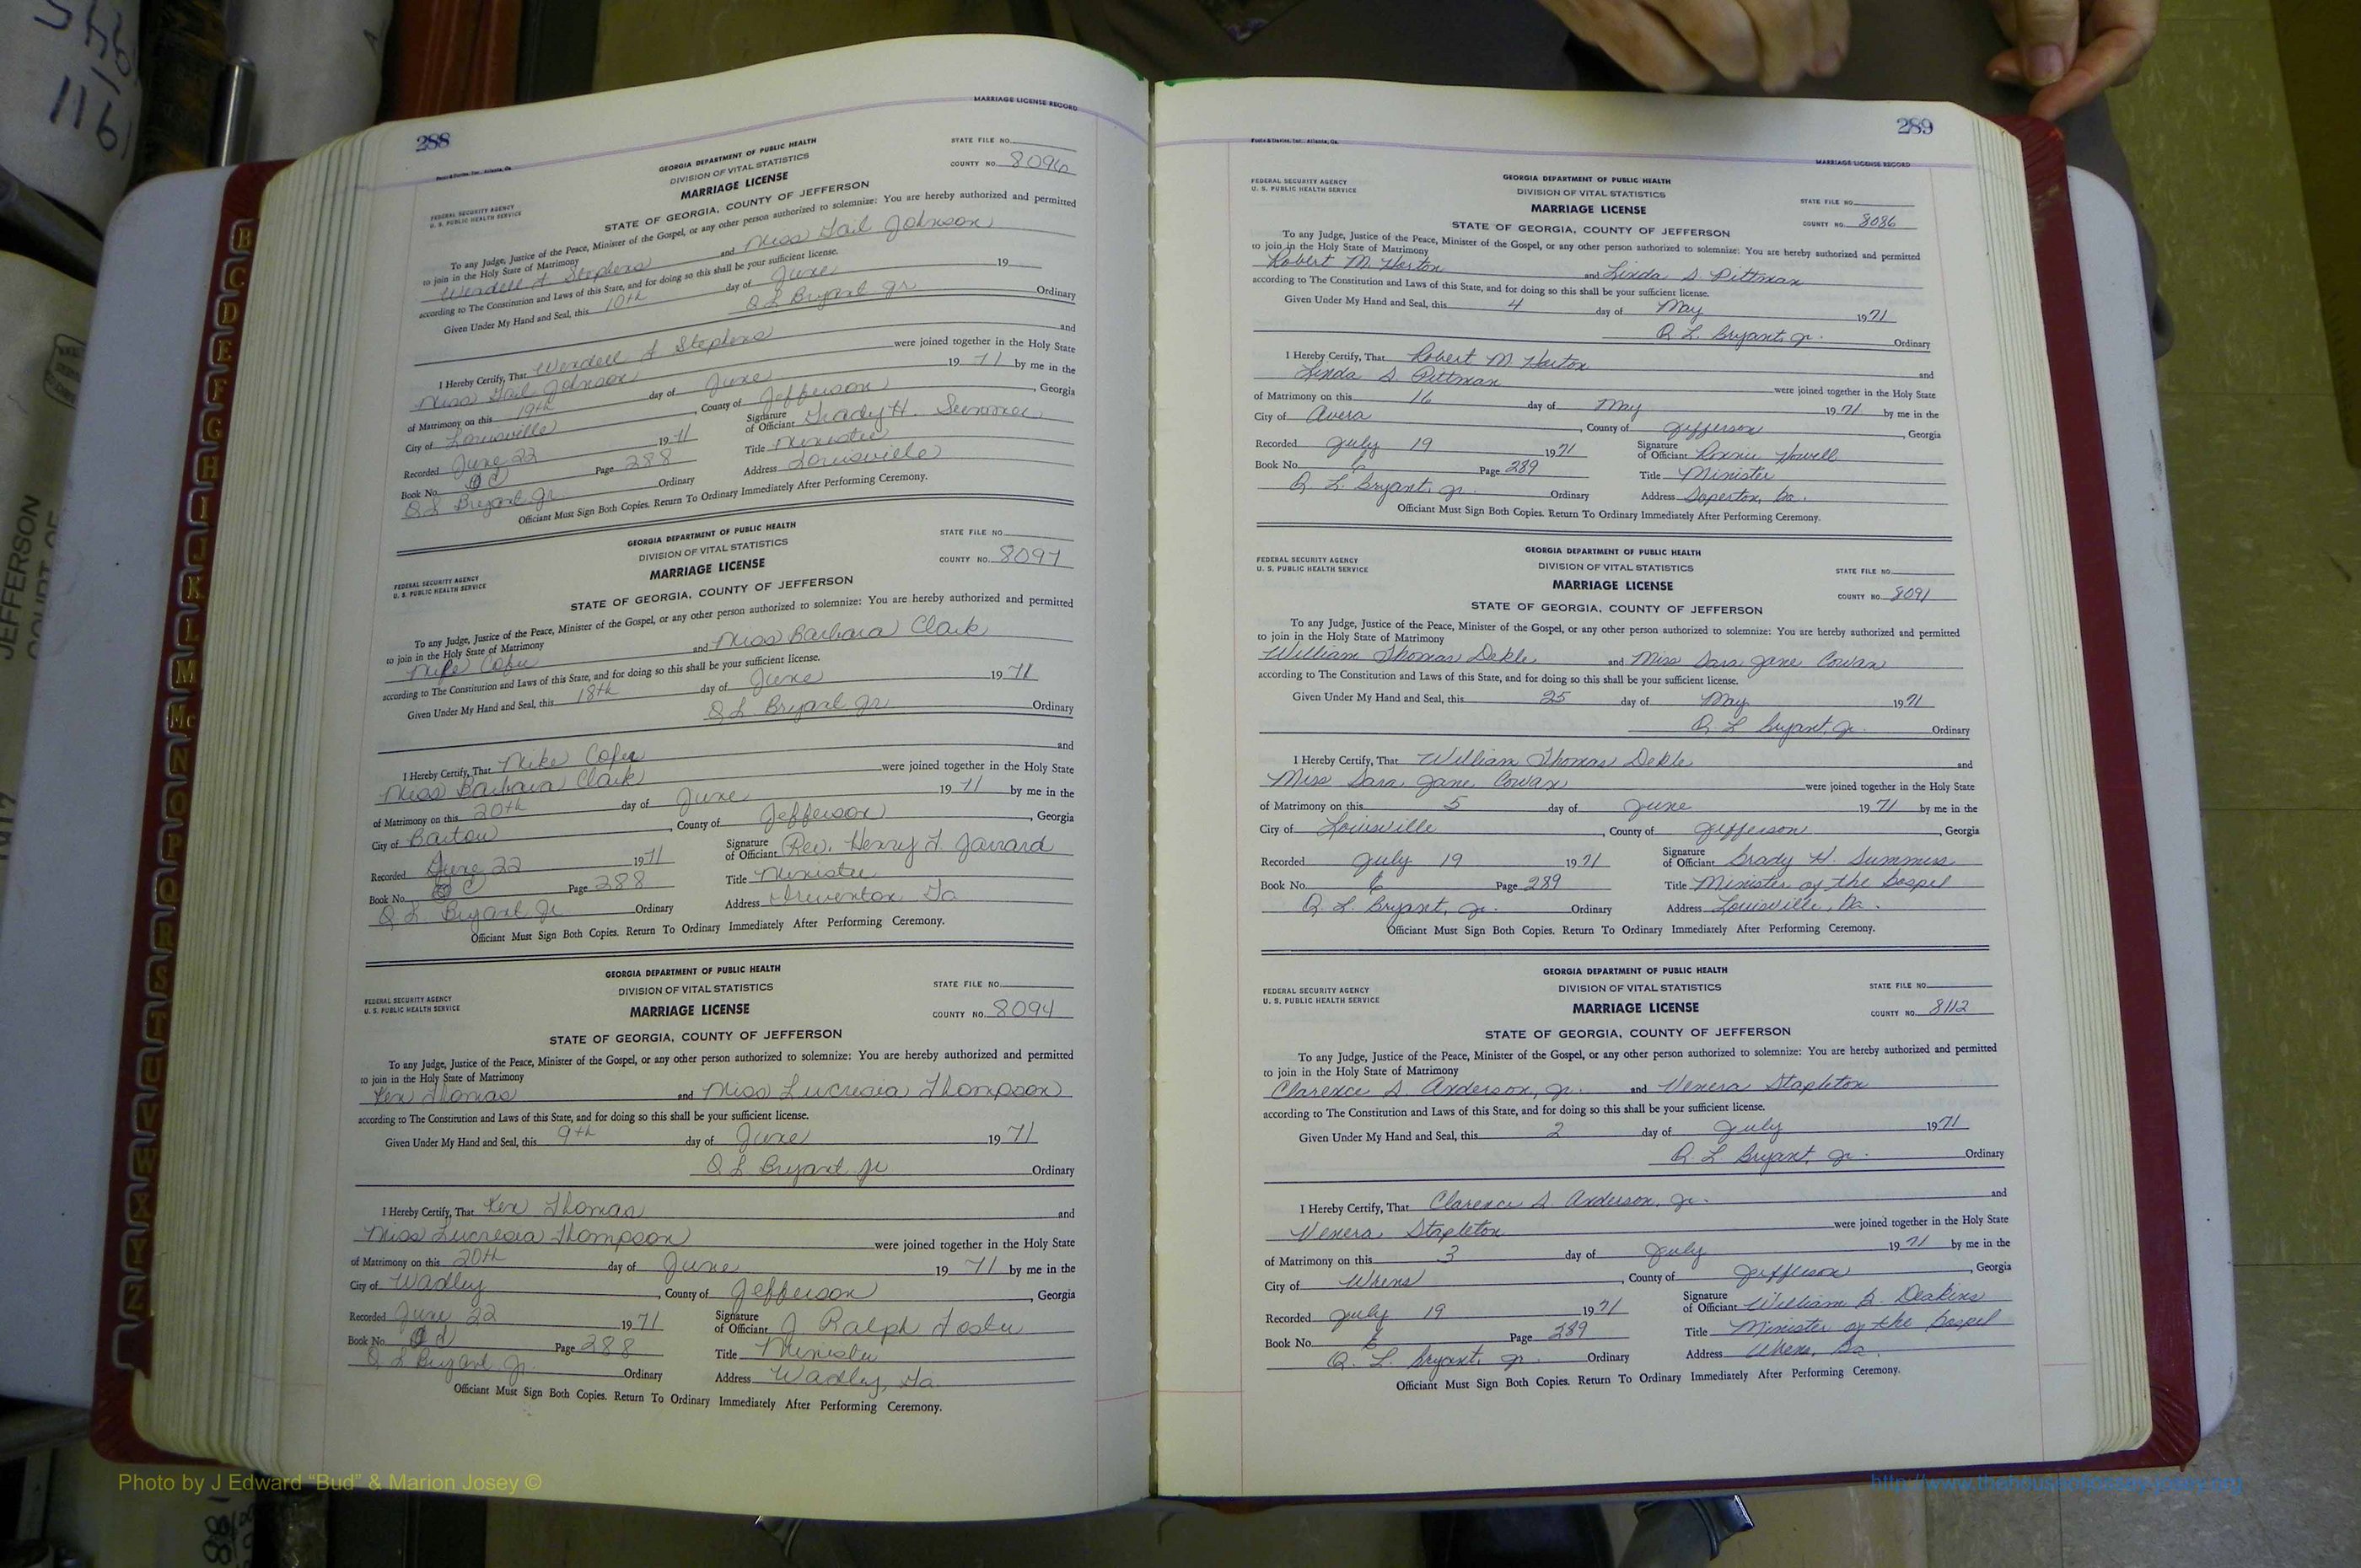 288
MARRIAGE LICENSE RECORD
Foote & Davies, Inc., Atlanta, Ga.
GEORGIA DEPARTMENT OF PUBLIC HEALTH
DIVISION OF VITAL STATISTICS
MARRIAGE LICENSE
STATE FILE NO.
COUNTY NO. 8096
FEDERAL SECURITY AGENCY
U. S. PUBLIC HEALTH SERVICE
STATE OF GEORGIA, COUNTY OF JEFFERSON
To any Judge, Justice of the Peace, Minister of the Gospel, or any other person authorized to solemnize: You are hereby authorized and permitted
to join in the Holy State of Matrimony
Wendell A Stephens and Miss Gail Johnson
according to The Constitution and Laws of this State, and for doing so this shall be your sufficient license.
Given Under My Hand and Seal, this 10th day of June 19
Q L Bryant Jr Ordinary
I Hereby Certify, That Wendell A Stephens and
Miss Gail Johnson were joined together in the Holy State
of Matrimony on this 19th day of June 19 71 by me in the
City of Louisville, County of Jefferson, Georgia
Recorded June 22 19 71 Signature of Officiant Grady H. Summer
Book No. Page 288 Title Minister
Q L Bryant Jr. Ordinary Address Louisville
Officiant Must Sign Both Copies. Return To Ordinary Immediately After Performing Ceremony.
GEORGIA DEPARTMENT OF PUBLIC HEALTH
DIVISION OF VITAL STATISTICS
MARRIAGE LICENSE
STATE FILE NO.
COUNTY NO. 8097
FEDERAL SECURITY AGENCY
U. S. PUBLIC HEALTH SERVICE
STATE OF GEORGIA, COUNTY OF JEFFERSON
To any Judge, Justice of the Peace, Minister of the Gospel, or any other person authorized to solemnize: You are hereby authorized and permitted
to join in the Holy State of Matrimony
and Miss Barbara Clark
according to The Constitution and Laws of this State, and for doing so this shall be your sufficient license.
Given Under My Hand and Seal, this 18th day of June 19 71
Q L Bryant Jr Ordinary
I Hereby Certify, That Mike and
Miss Barbara Clark were joined together in the Holy State
of Matrimony on this 20th day of June 19 71 by me in the
City of Bartow, County of Jefferson, Georgia
Recorded June 22 19 71 Signature of Officiant Rev. Henry T. Jarrard
Book No. Page 288 Title Minister
Q L. Bryant Jr. Ordinary Address Ga
Officiant Must Sign Both Copies. Return To Ordinary Immediately After Performing Ceremony.
GEORGIA DEPARTMENT OF PUBLIC HEALTH
DIVISION OF VITAL STATISTICS
MARRIAGE LICENSE
STATE FILE NO.
COUNTY NO. 8094
FEDERAL SECURITY AGENCY
U. S. PUBLIC HEALTH SERVICE
STATE OF GEORGIA, COUNTY OF JEFFERSON
To any Judge, Justice of the Peace, Minister of the Gospel, or any other person authorized to solemnize: You are hereby authorized and permitted
to join in the Holy State of Matrimony
Ken Thomas and Miss Lucresia Thompson
according to The Constitution and Laws of this State, and for doing so this shall be your sufficient license.
Given Under My Hand and Seal, this 9th day of June 19 71
Q L Bryant Jr Ordinary
I Hereby Certify, That Ken Thomas and
Miss Lucresia Thompson were joined together in the Holy State
of Matrimony on this 20th day of June 19 71 by me in the
City of Wadley, County of Jefferson, Georgia
Recorded June 22 19 71 Signature of Officiant J Ralph
Book No. Page 288 Title Minister
Q L Bryant Jr. Ordinary Address Wadley, Ga.
Officiant Must Sign Both Copies. Return To Ordinary Immediately After Performing Ceremony.
289
Foote & Davies, Inc., Atlanta, Ga.
MARRIAGE LICENSE RECORD
GEORGIA DEPARTMENT OF PUBLIC HEALTH
DIVISION OF VITAL STATISTICS
MARRIAGE LICENSE
STATE FILE NO.
COUNTY NO. 8086
FEDERAL SECURITY AGENCY
U. S. PUBLIC HEALTH SERVICE
STATE OF GEORGIA, COUNTY OF JEFFERSON
To any Judge, Justice of the Peace, Minister of the Gospel, or any other person authorized to solemnize: You are hereby authorized and permitted
to join in the Holy State of Matrimony
Robert M. Horton and Linda S. Pittman
according to The Constitution and Laws of this State, and for doing so this shall be your sufficient license.
Given Under My Hand and Seal, this 4 day of May 19 71
Q. L. Bryant, Jr. Ordinary
I Hereby Certify, That Robert M. Horton and
Linda S. Pittman were joined together in the Holy State
of Matrimony on this 16 day of May 19 71 by me in the
City of Avera, County of Jefferson, Georgia
Recorded July 19 19 71 Signature of Officiant Ronnie Howell
Book No. 6 Page 289 Title Minister
Q. L. Bryant, Jr. Ordinary Address Soperton, Ga.
Officiant Must Sign Both Copies. Return To Ordinary Immediately After Performing Ceremony.
GEORGIA DEPARTMENT OF PUBLIC HEALTH
DIVISION OF VITAL STATISTICS
MARRIAGE LICENSE
STATE FILE NO.
COUNTY NO. 8091
FEDERAL SECURITY AGENCY
U. S. PUBLIC HEALTH SERVICE
STATE OF GEORGIA, COUNTY OF JEFFERSON
To any Judge, Justice of the Peace, Minister of the Gospel, or any other person authorized to solemnize: You are hereby authorized and permitted
to join in the Holy State of Matrimony
William Thomas Dekle and Miss Sara Jane Cowan
according to The Constitution and Laws of this State, and for doing so this shall be your sufficient license.
Given Under My Hand and Seal, this 25 day of May 19 71
Q. L Bryant, Jr. Ordinary
I Hereby Certify, That William Thomas Dekle and
Miss Sara Jane Cowan were joined together in the Holy State
of Matrimony on this 5 day of June 19 71 by me in the
City of Louisville, County of Jefferson, Georgia
Recorded July 19 19 71 Signature of Officiant Grady H. Summers
Book No. 6 Page 289 Title Minister of the Gospel
Q. L. Bryant, Jr. Ordinary Address Louisville, Ga.
Officiant Must Sign Both Copies. Return To Ordinary Immediately After Performing Ceremony.
GEORGIA DEPARTMENT OF PUBLIC HEALTH
DIVISION OF VITAL STATISTICS
MARRIAGE LICENSE
STATE FILE NO.
COUNTY NO. 8112
FEDERAL SECURITY AGENCY
U. S. PUBLIC HEALTH SERVICE
STATE OF GEORGIA, COUNTY OF JEFFERSON
To any Judge, Justice of the Peace, Minister of the Gospel, or any other person authorized to solemnize: You are hereby authorized and permitted
to join in the Holy State of Matrimony
Clarence S. Anderson, Jr. and Venera Stapleton
according to The Constitution and Laws of this State, and for doing so this shall be your sufficient license.
Given Under My Hand and Seal, this 2 day of July 19 71
Q. L Bryant, Jr. Ordinary
I Hereby Certify, That Clarence S. Anderson, Jr. and
Venera Stapleton were joined together in the Holy State
of Matrimony on this 3 day of July 19 71 by me in the
City of Whens, County of Jefferson, Georgia
Recorded July 19 19 71 Signature of Officiant William G. Deakins
Book No. 6 Page 289 Title Minister of the Gospel
Q. L. Bryant, Jr. Ordinary Address Ga.
Officiant Must Sign Both Copies. Return To Ordinary Immediately After Performing Ceremony.
B
C
D
E
F
G
H
I
J
K
L
M
Mc
N
O
P
Q
R
S
T
U
V
W
X
Y
Z
JEFFERSON
Photo by J Edward “Bud” & Marion Josey ©